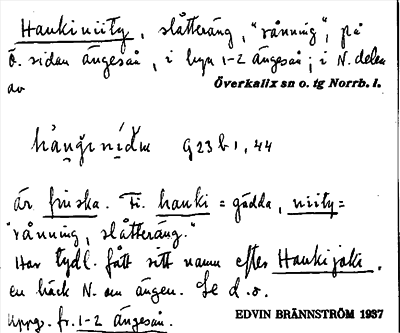 Haukiniity, slåtteräng, "rånning", på
Ö. sidan ängesån, i byn 1-2 ängesån; i N. delen
av
Överkalix sn o. tg Norrb. l.
G23b1, 44
är finska. Fi. hauki = gädda, niity =
"rånning, slåtteräng."
Har tydl. fått sitt namn efter Haukijoki,
en bäck N. om ängen. Se d. o.
Uppg. fr. 1-2 ängesån.
EDVIN BRÄNNSTRÖM 1937